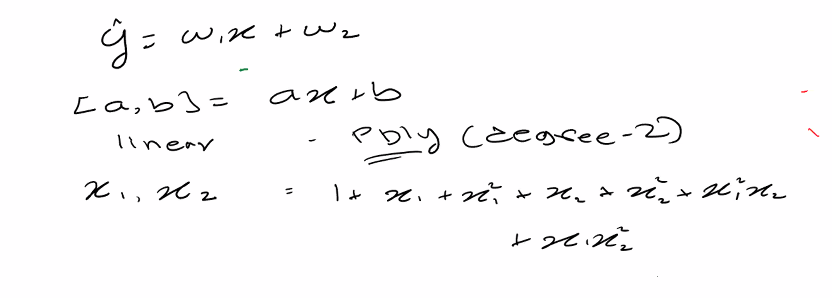 ŷ = w₁x + w₂
[a,b] = ax+b
linear - Poly (degree-2)
x₁, x₂ = 1+ x₁ + x₁² + x₂ + x₂² + x₁²x₂
+ x₁x₂²